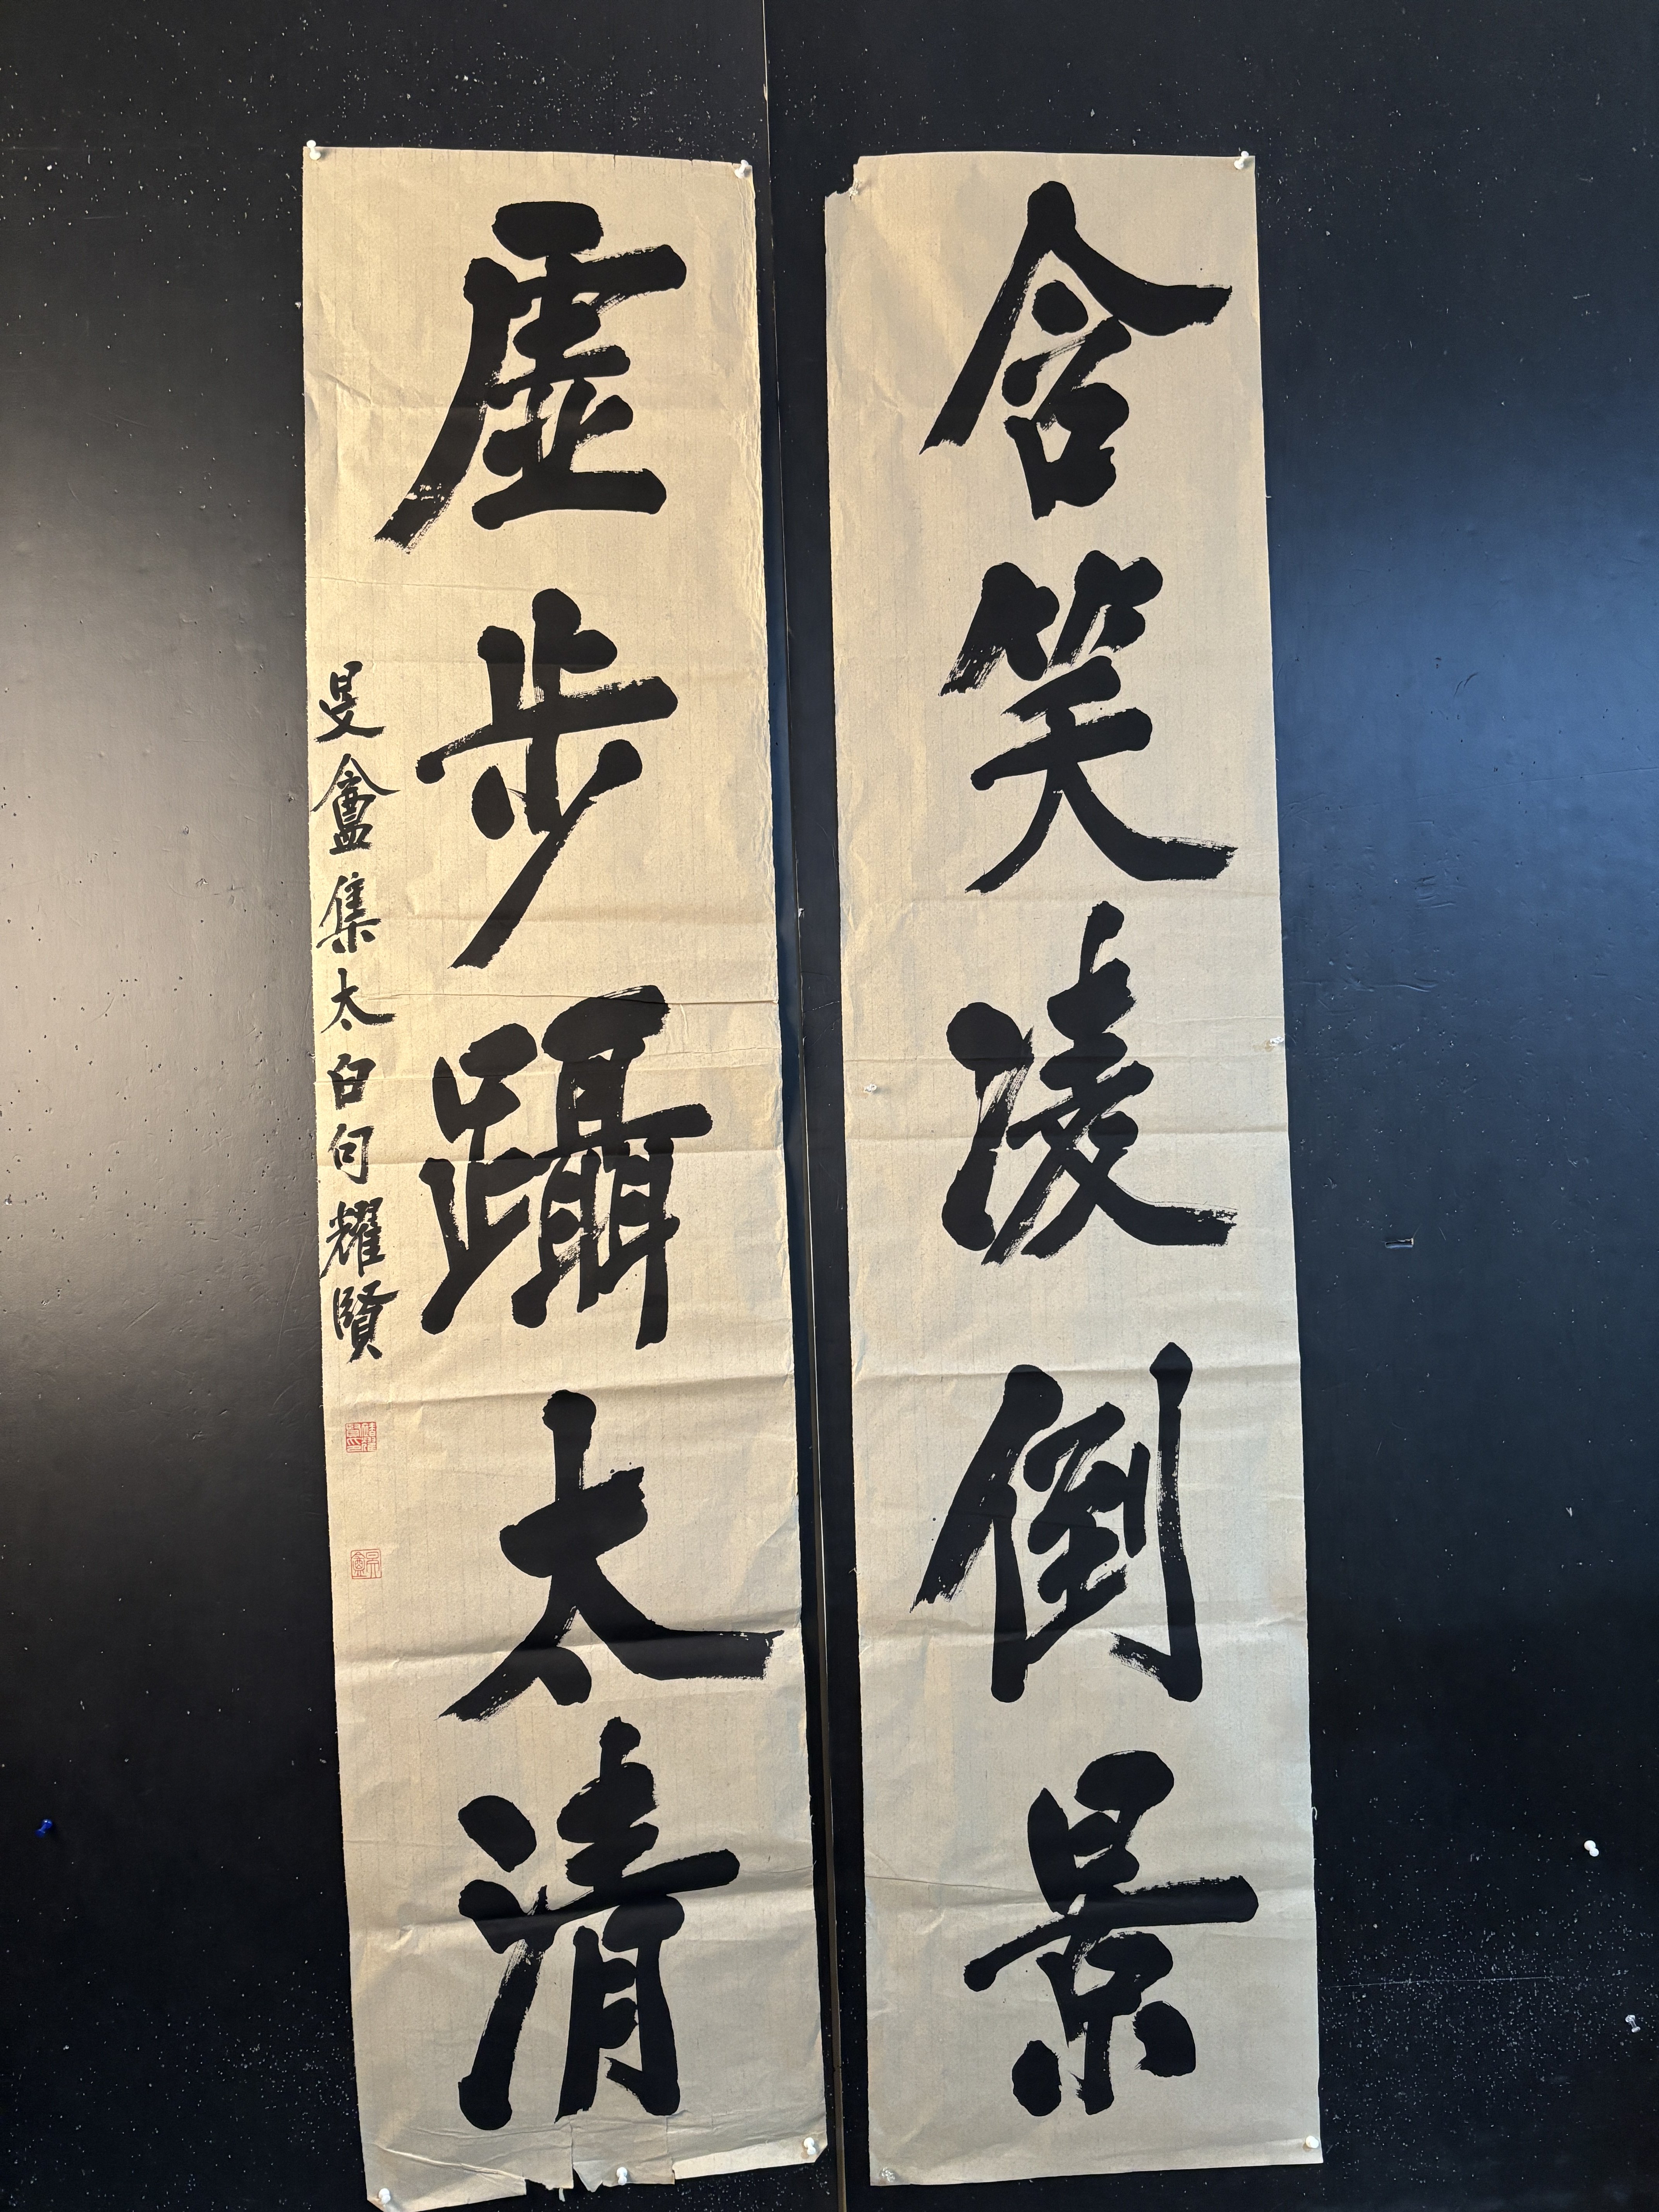 含笑凌倒景
虚步躡太清
旻盦集太白句耀賢